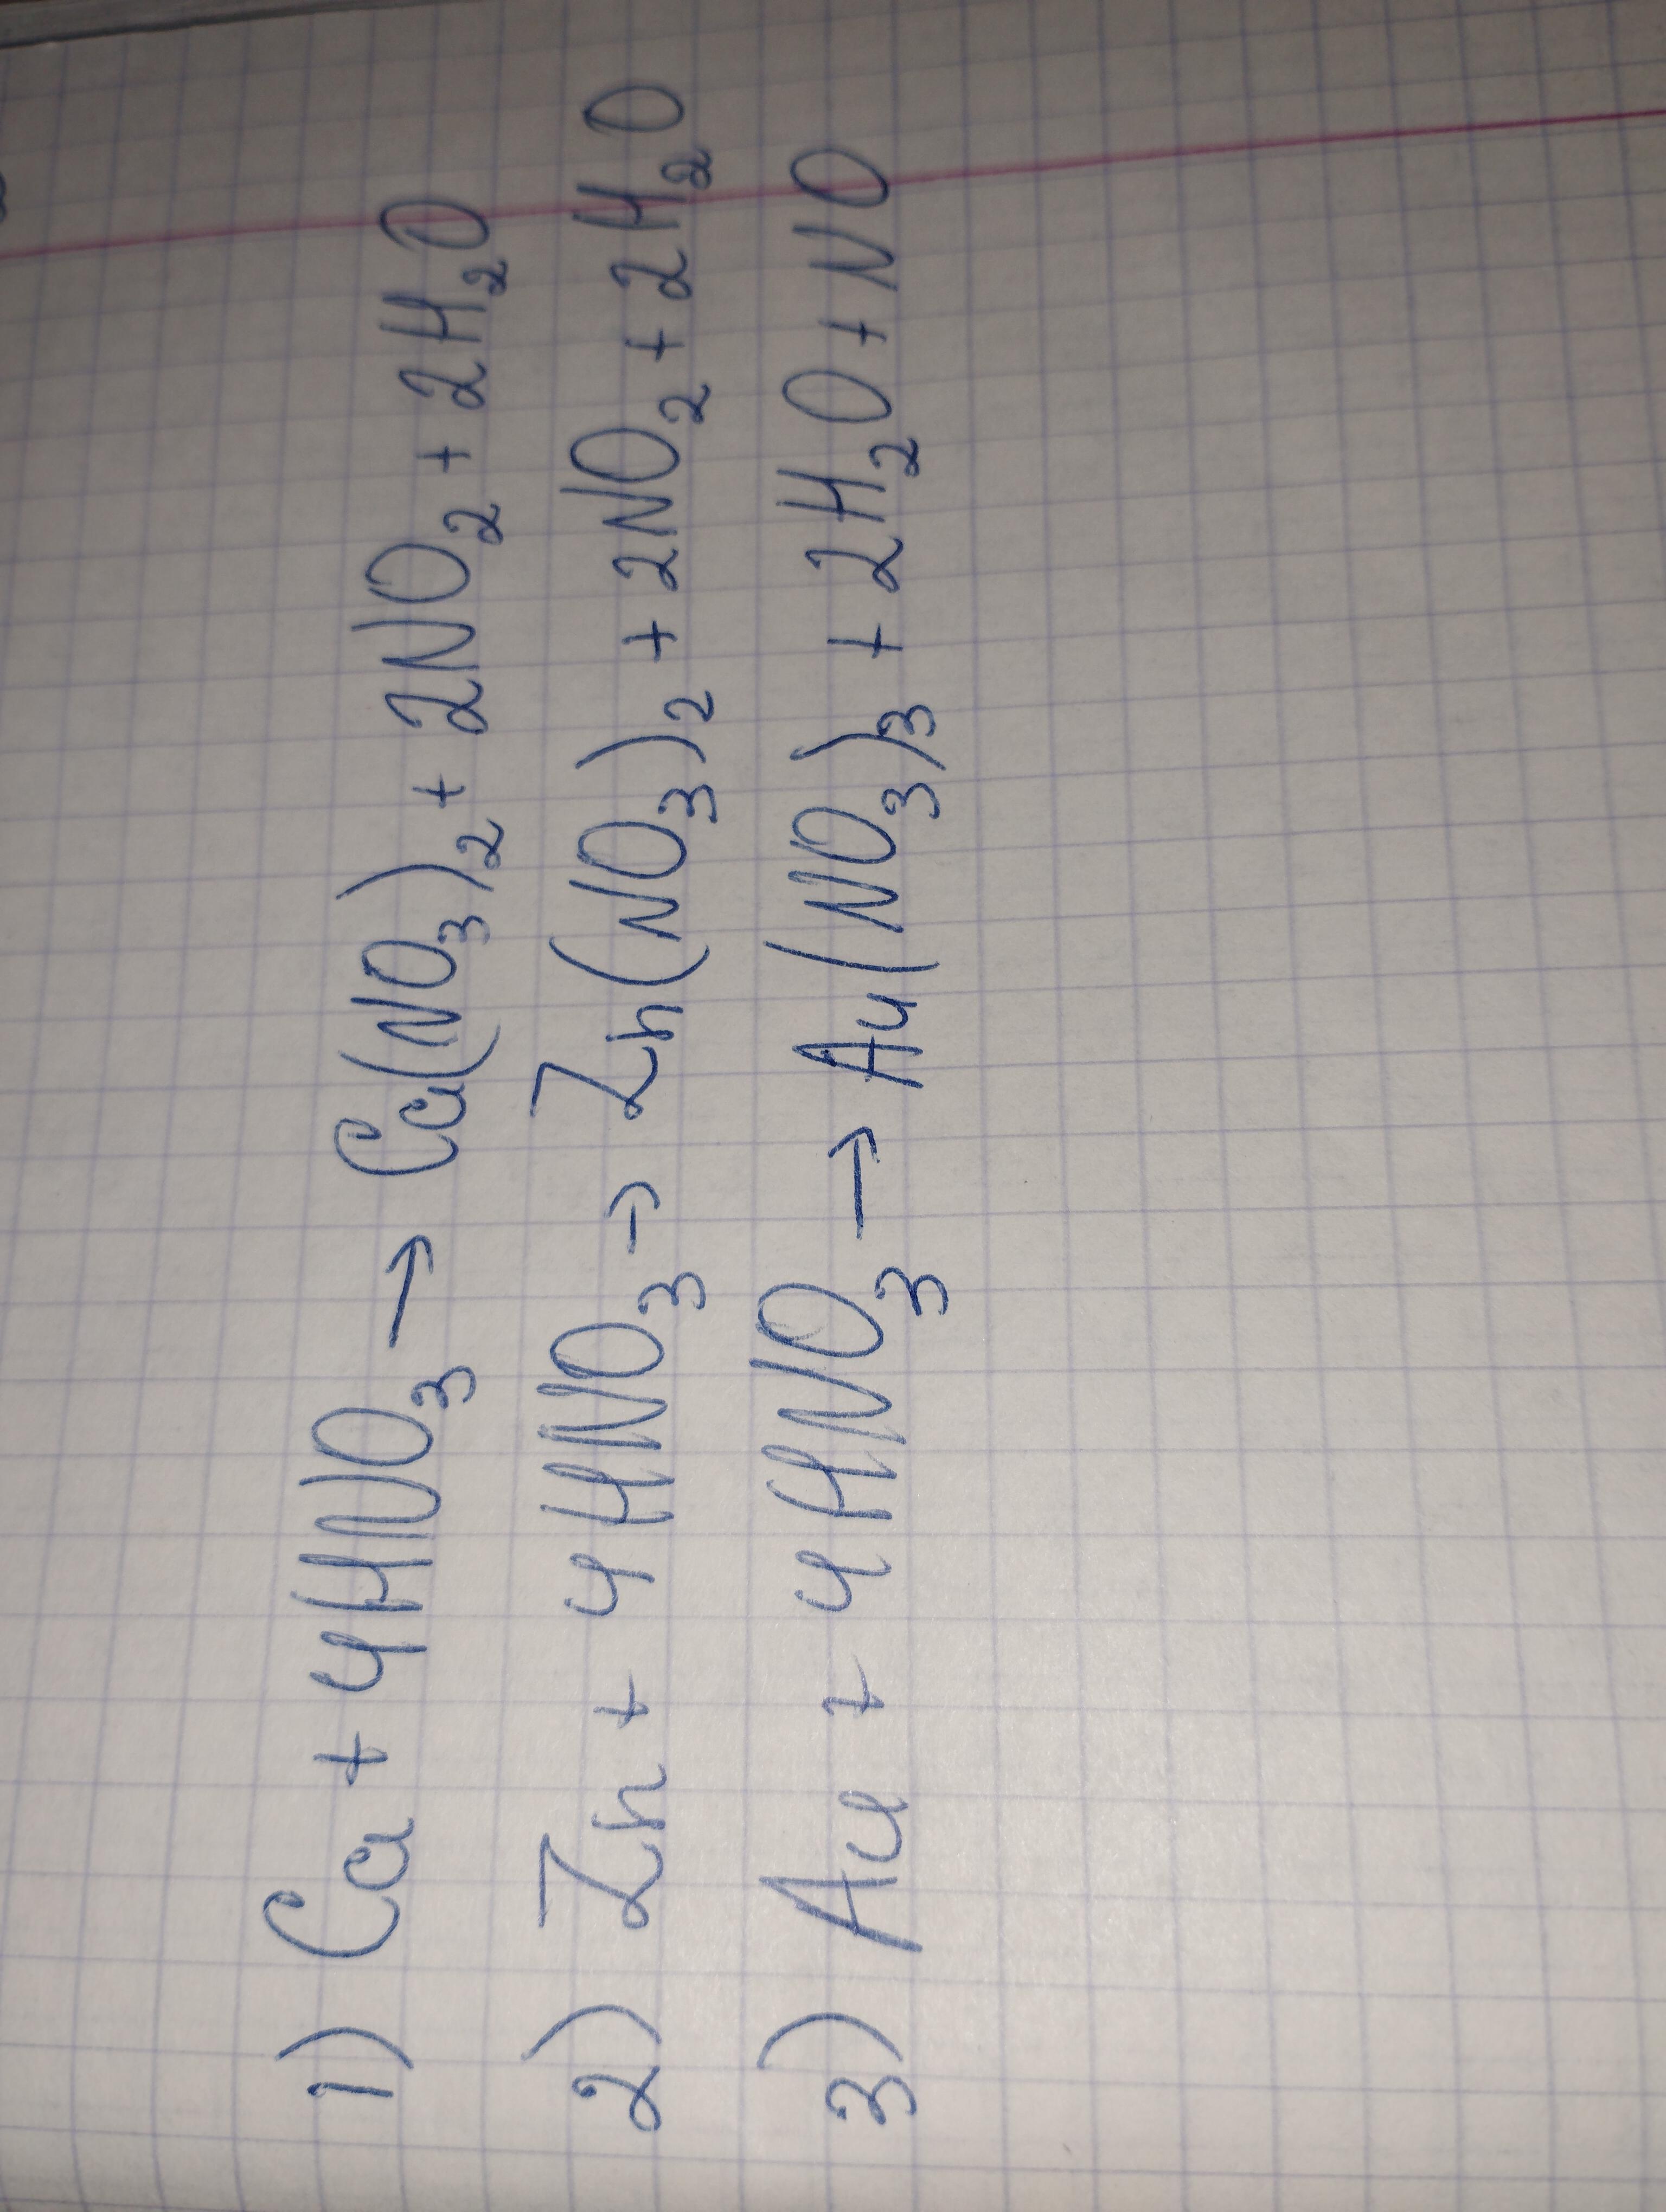 1) Ca + 4HNO₃ → Ca(NO₃)₂ + 2NO₂ + 2H₂O
2) Zn + 4HNO₃ → Zn(NO₃)₂ + 2NO₂ + 2H₂O
3) Au + 4HNO₃ → Au(NO₃)₃ + 2H₂O + NO